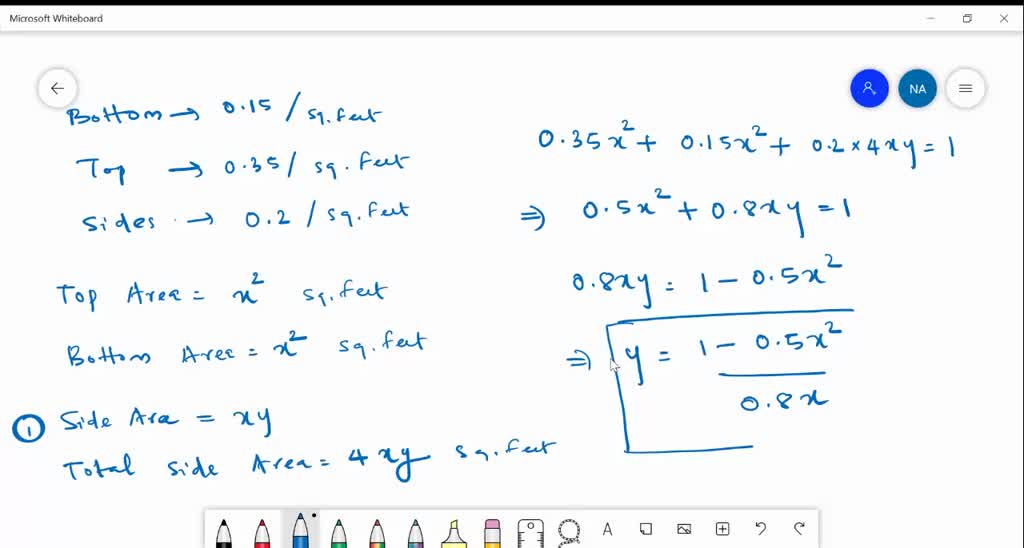 Microsoft Whiteboard
NA
Bottom → 0.15 / sq.feet
Top → 0.35 / sq. feet
Sides → 0.2 / sq.feet
Top Area = x² sq.feet
Bottom Area = x² sq.feet
① Side Area = xy
Total side Area = 4xy sq.feet
0.35x² + 0.15x² + 0.2 × 4xy = 1
⇒ 0.5x² + 0.8xy = 1
0.8xy = 1 − 0.5x²
⇒ y = 1 − 0.5x²
0.8x
A